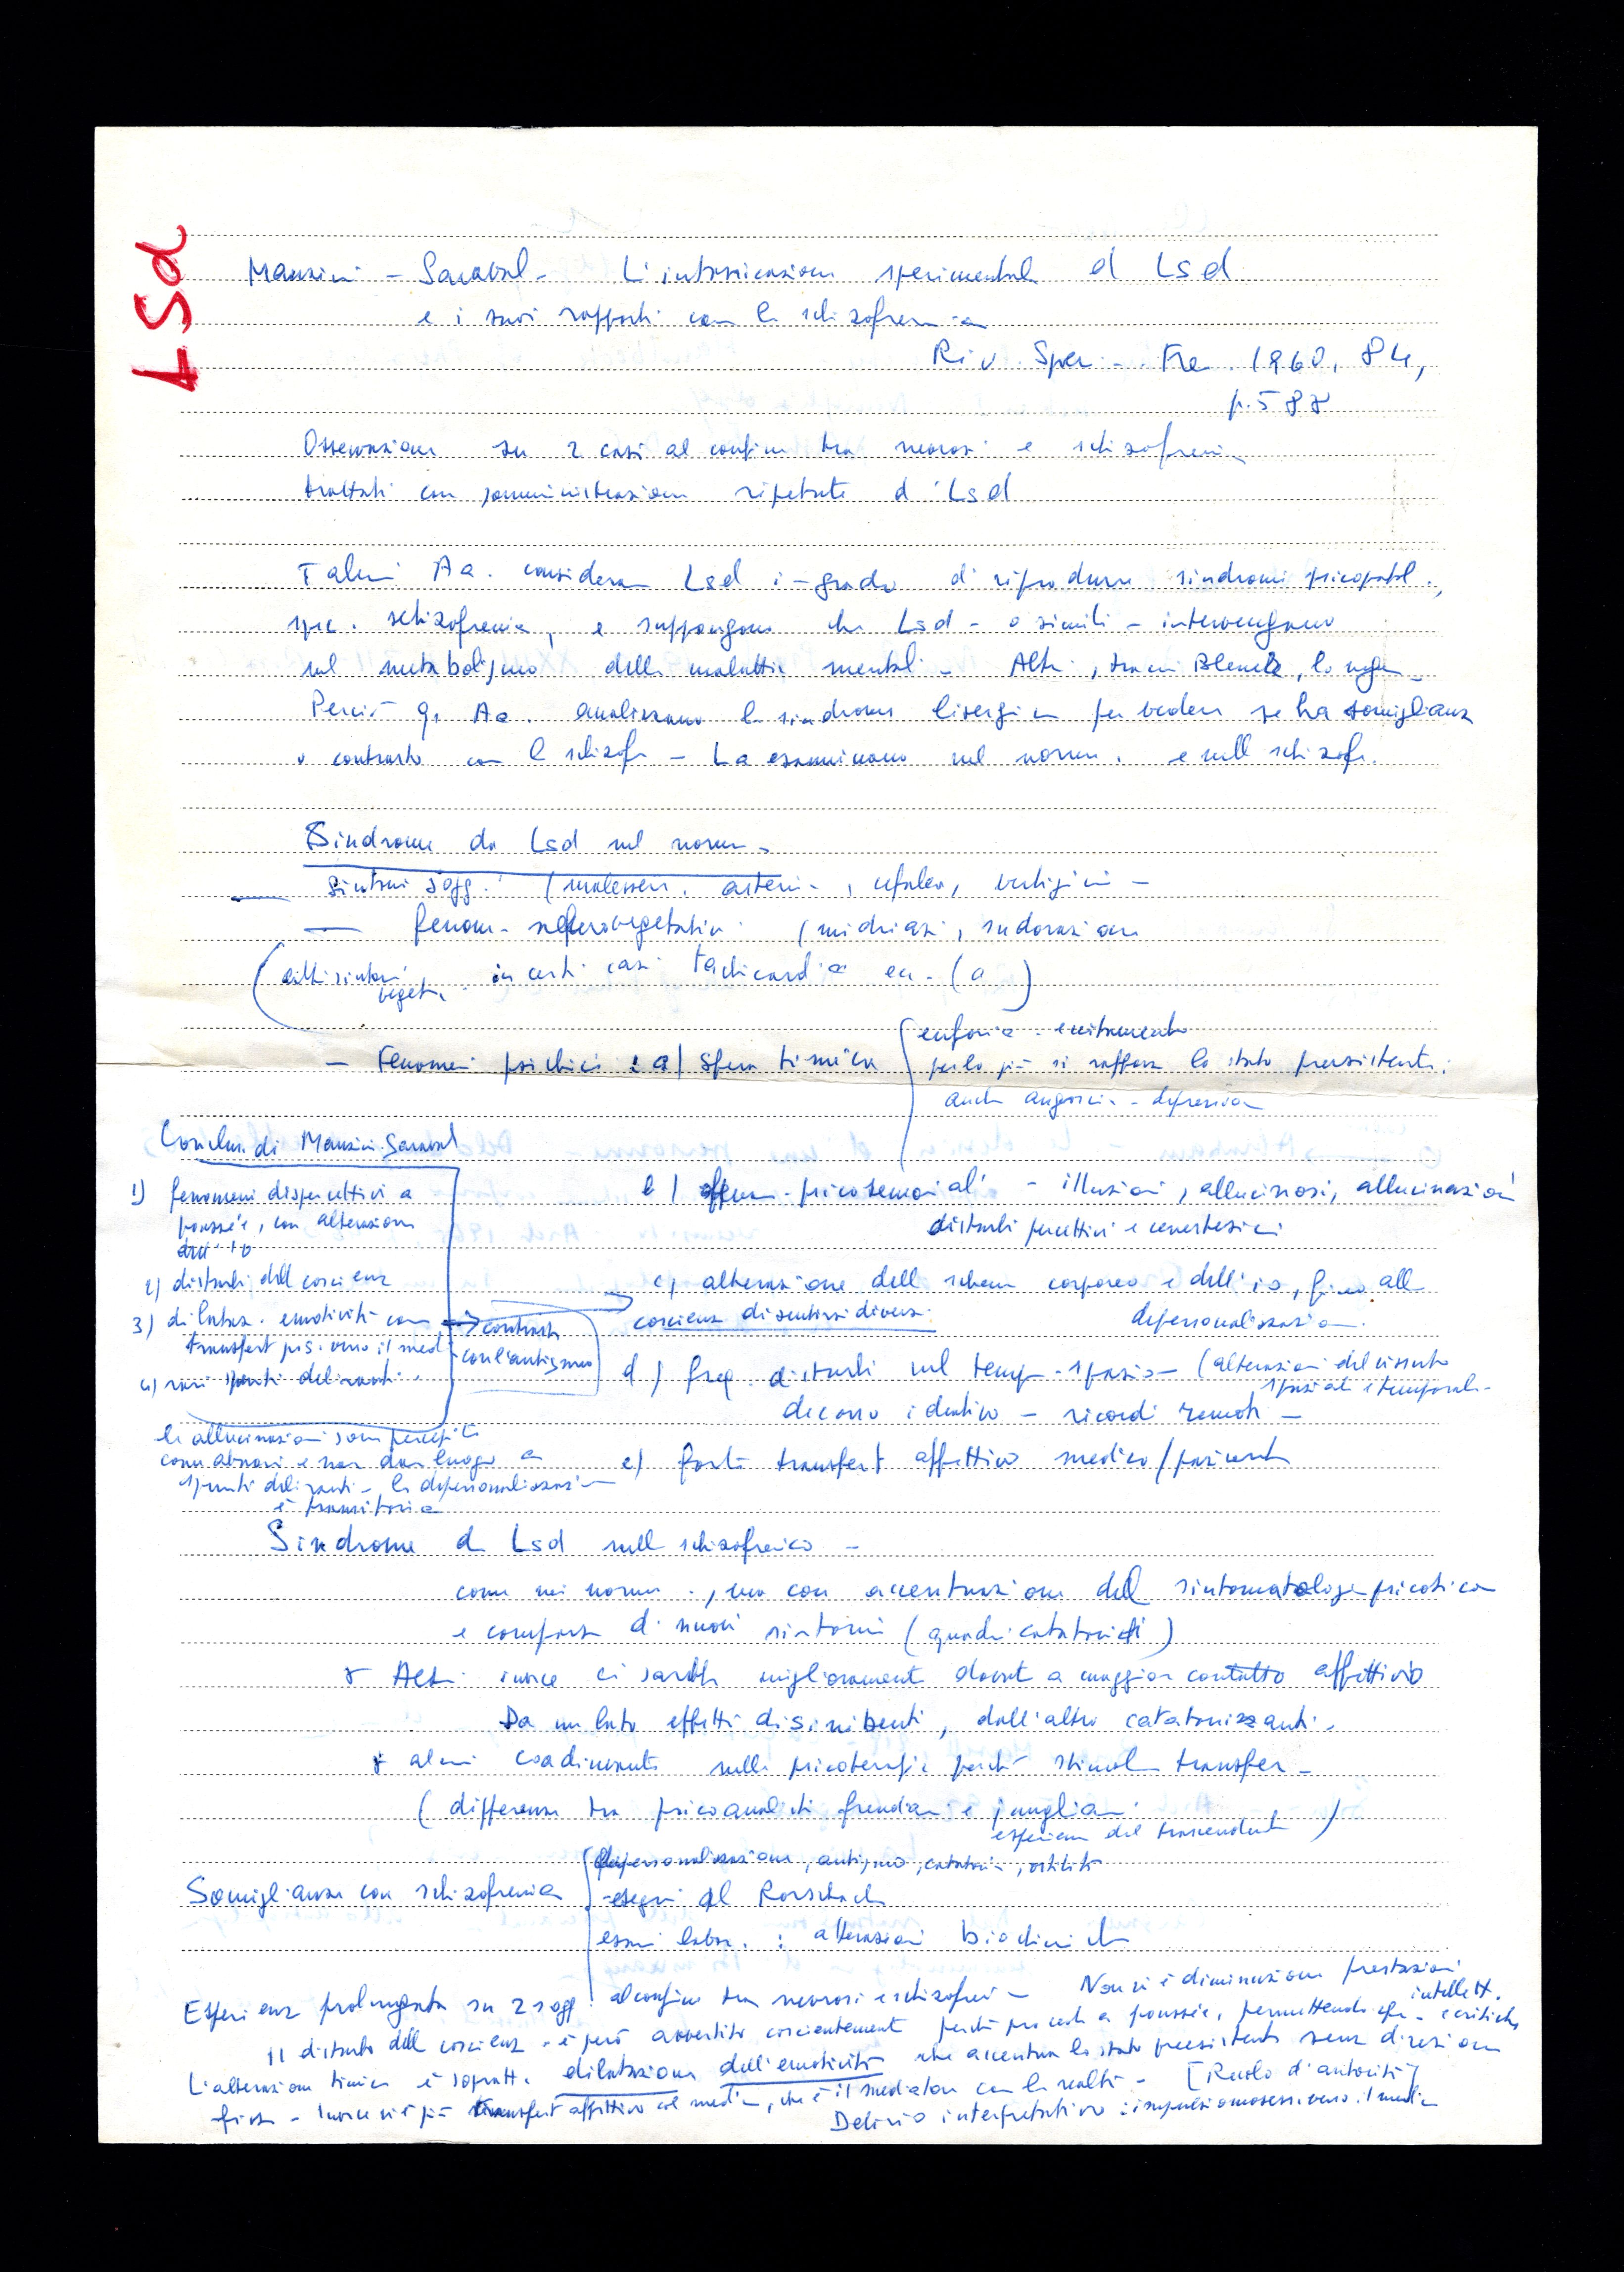 LSd
Manzini - Saraval - L'intossicazione sperimentale d Lsd
e i suoi rapporti con la schizofrenia
Riv. Sper. Fre. 1960, 84,
p. 588
Osservazione su 2 casi al confine tra neurosi e schizofrenia
trattati con somministrazione ripetute d. Lsd
Taluni Aa. considerano Lsd in grado di riprodurre sindromi psicopatol.,
spec. schizofrenia, e suppongono che Lsd - o simili - intervengano
nel metabolismo delle malattie mentali - Altri, tra cui Bleuler, lo negan -
Perciò qi Aa. analizzano la sindrome lisergica per vedere se ha somiglianza
o contrasto con la schizofr - La esaminano nel norm. e nello schizofr.
Sindrome da Lsd nel norm -
Sintomi sogg. (malessere, astenia, cefalea, vertigini -
- fenom. neurovegetativi (midriasi, sudorazione
(altri sintomi veget. in certi casi tachicardia ecc. (a)
- Fenomeni psichici : a) sfera timica
euforia - eccitamento
per lo più si rafforza lo stato preesistente.
anche angoscia - depressione
Conclus. di Manzini Saraval
1) fenomeni dispercettivi a
poussée, con alterazioni
dell'io
2) disturbi della coscienza
3) dilataz. emotività con
transfert pos. verso il medico
4) rari spunti deliranti.
contrasta
con l'autismo
le allucinazioni sono percepite
come abnormi e non dan luogo a
spunti deliranti - la depersonalizzazione
è transitoria
b) fenom. psicosensoriali - illusioni, allucinosi, allucinazioni
disturbi percettivi e cenestesici
c) alterazione dello schema corporeo e dell'io, fino alla
depersonalizzazione.
coscienza di sentirsi diversi
d) freq. disturbi nel tempo - spazio - (alterazioni del vissuto
spaziale e temporale -
decorso ideativo - ricordi remoti -
e) forte transfert affettivo medico/paziente
Sindrome da Lsd nello schizofrenico -
come nei norm., ma con accentuazione della sintomatologia psicotica
e comparsa di nuovi sintomi (quadri catatonici)
Altri invece ci sarebbe miglioramento dovuto a maggior contatto affettivo
Da un lato effetti disinibenti, dall'altro catatonizzanti.
alcuni coadiuvante nella psicoterapia perché stimola transfer -
(differenza tra psicoanalisti freudiani e junghiani
esperienza del trascendente)
Somiglianze con schizofrenia
depersonalizzazione, autismo, catatonia, ostilità
- segni al Rorschach
esami labor. : alterazioni biochimiche
Esperienza prolungata su 2 sogg. al confine tra neurosi e schizofrenia - Non vi è diminuzione prestazioni
intellett.
Il disturbo della coscienza è però avvertito coscientemente perché procede a poussée, permettendo critiche
L'alterazione timica è sopratt. dilatazione dell'emotività che accentua lo stato preesistente senza direzione
fissa - Invece vi è più transfert affettivo col medico, che è il mediatore con la realtà - [Ruolo d'autorità]
Delirio interpretativo : impulsi omosess. verso il medico